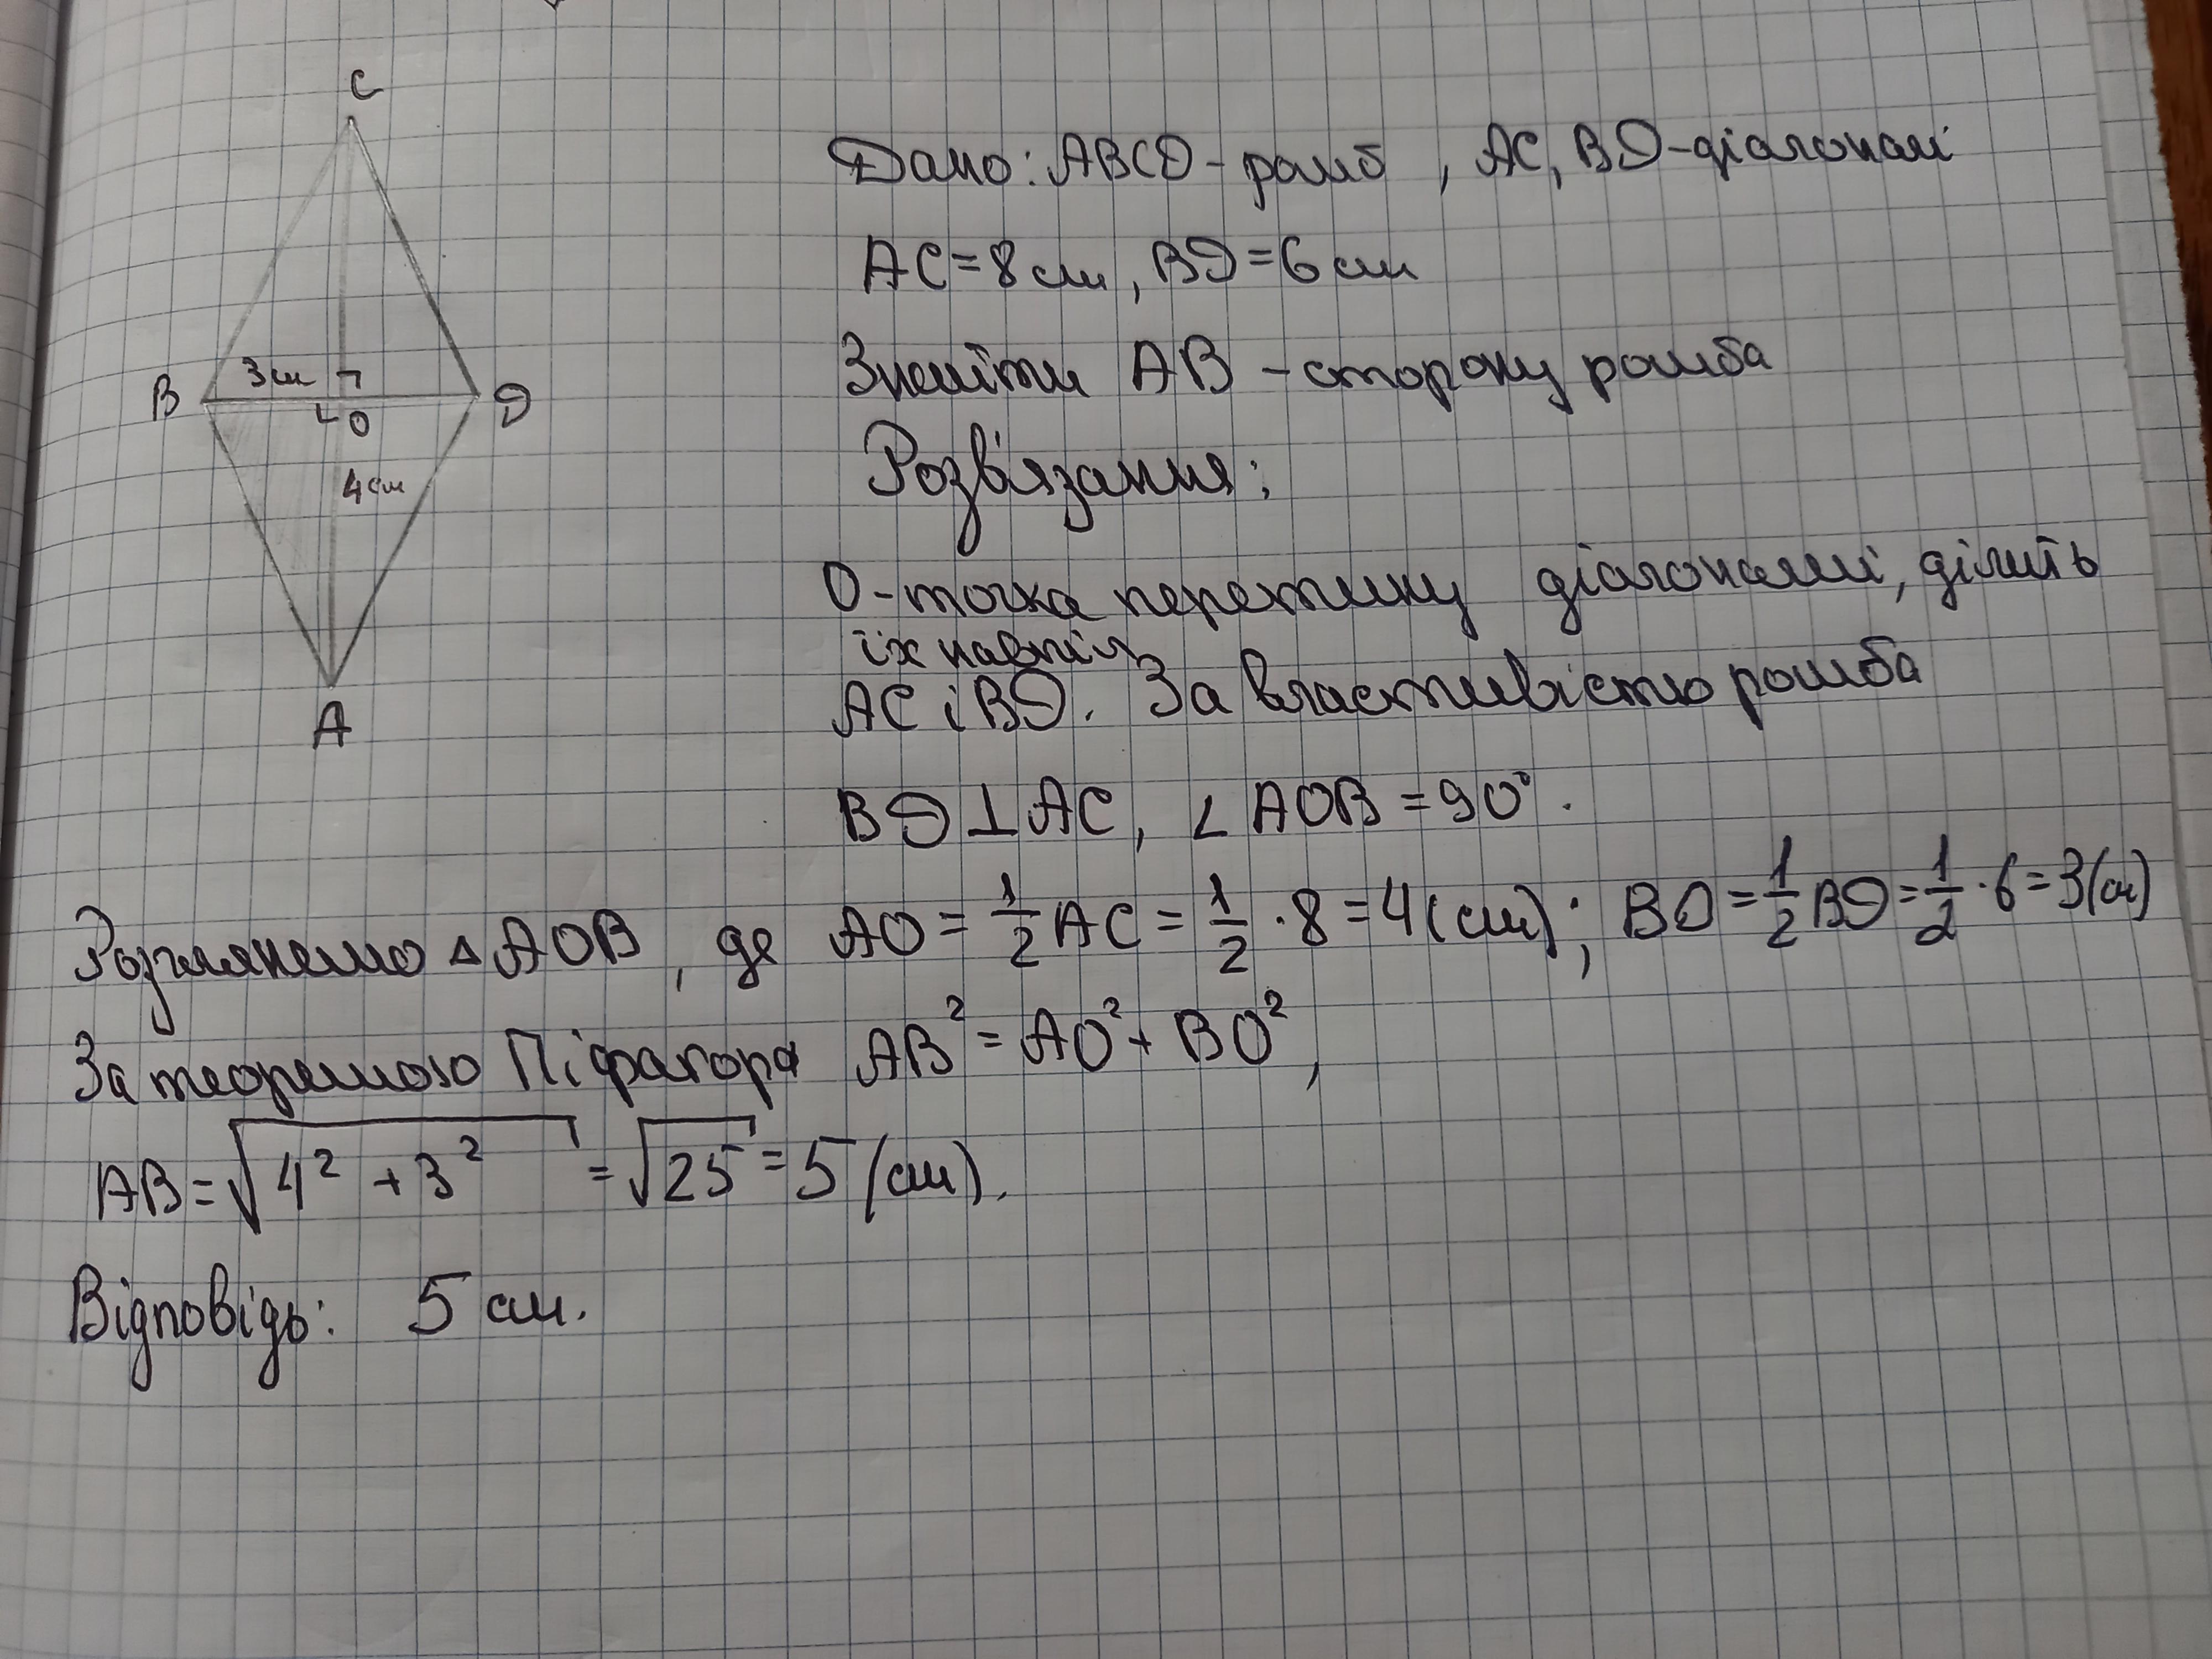 C
Дано: ABCD - ромб , AC, BD - діагоналі
AC = 8 см, BD = 6 см
Знайти AB - сторону ромба
B 3 см D
O
4 см
Розв'язання:
O - точка перетину діагоналі, ділить
їх навпіл
AC і BD. За властивістю ромба
A
BD ⊥ AC, ∠ AOB = 90°.
Розглянемо △ AOB, де AO = 1/2 AC = 1/2 · 8 = 4 (см); BO = 1/2 BD = 1/2 · 6 = 3 (см)
За теоремою Піфагора AB² = AO² + BO²,
AB = √(4² + 3²) = √25 = 5 (см).
Відповідь: 5 см.